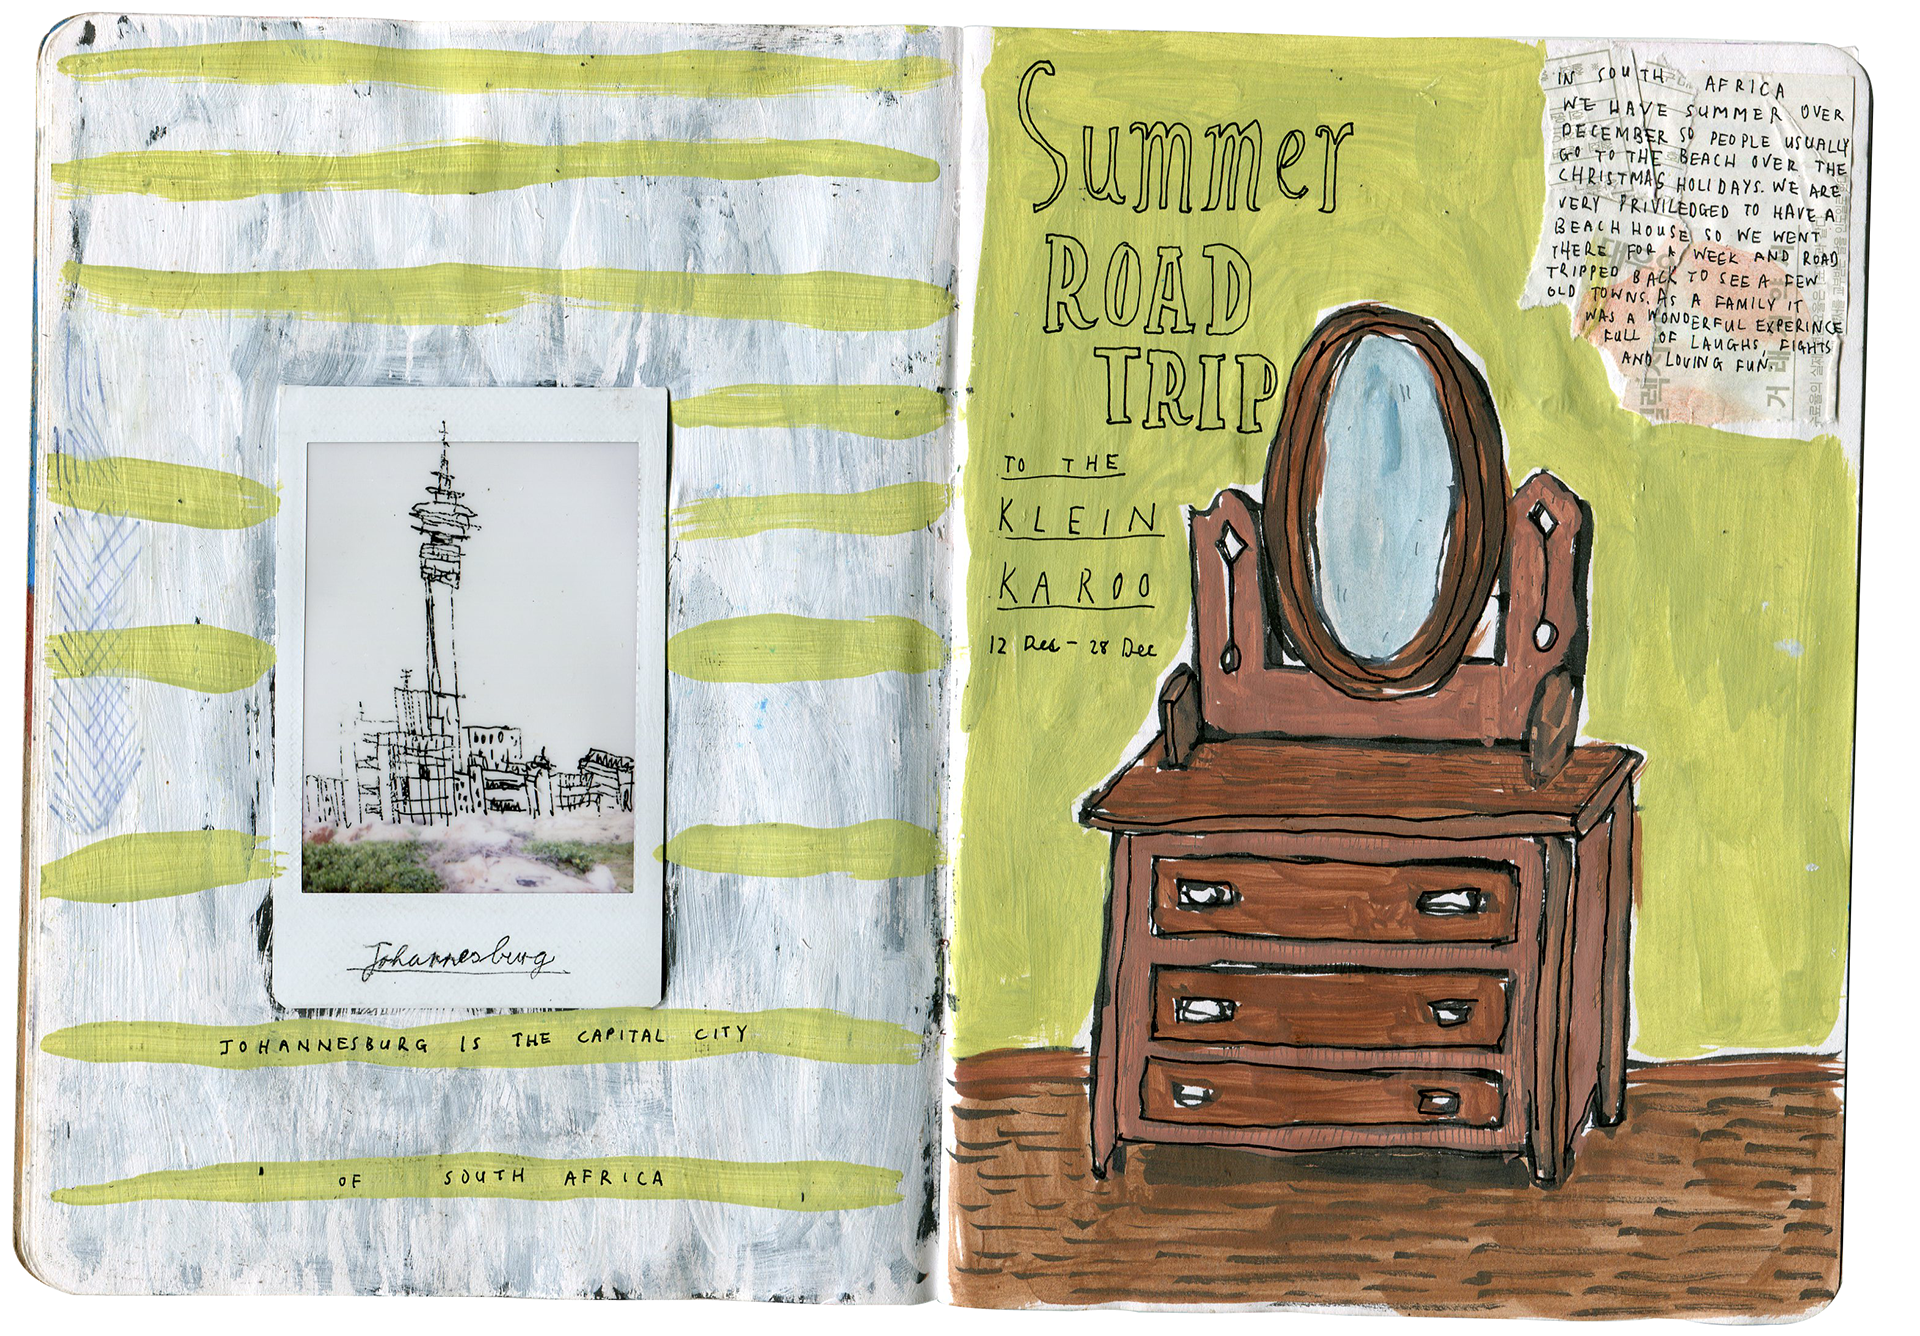 Johannesburg
JOHANNESBURG IS THE CAPITAL CITY
OF SOUTH AFRICA
Summer
ROAD
TRIP
TO THE
KLEIN
KAROO
12 Dec - 28 Dec
IN SOUTH AFRICA
WE HAVE SUMMER OVER
DECEMBER SO PEOPLE USUALLY
GO TO THE BEACH OVER THE
CHRISTMAS HOLIDAYS. WE ARE
VERY PRIVILEDGED TO HAVE A
BEACH HOUSE SO WE WENT
THERE FOR A WEEK AND ROAD
TRIPPED BACK TO SEE A FEW
OLD TOWNS. AS A FAMILY IT
WAS A WONDERFUL EXPERINCE
FULL OF LAUGHS, FIGHTS
AND LOVING FUN.
거래